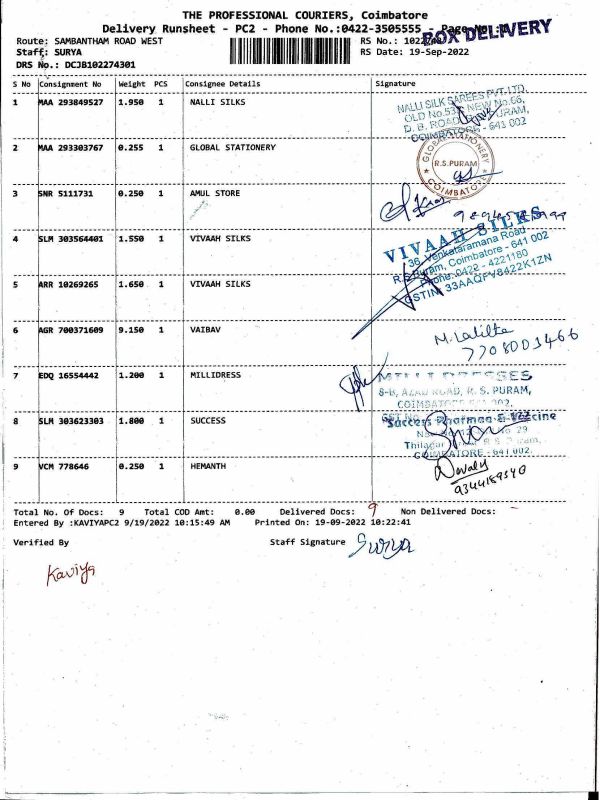 THE PROFESSIONAL COURIERS, Coimbatore
Delivery Runsheet - PC2 - Phone No.:0422-3505555 - Page No.:
BOX DELIVERY
Route: SAMBANTHAM ROAD WEST RS No.:
Staff: SURYA RS Date: 19-Sep-2022
DRS No.: DCJB102274301
S No Consignment No Weight PCS Consignee Details Signature
1 MAA 293849527 1.950 1 NALLI SILKS
NALLI SILK SAREES PVT.LTD.
OLD No.53, NEW No.66,
COIMBATORE - 641 002
2 MAA 293303767 0.255 1 GLOBAL STATIONERY
GLOBAL STATIONERY
R.S.PURAM
COIMBATORE
3 SNR 5111731 0.250 1 AMUL STORE
4 SLM 303564401 1.550 1 VIVAAH SILKS
VIVAAH SILKS
36, Venkataramana Road
R.S.Puram, Coimbatore - 641 002
Phone: 0422 - 4221180
GSTIN: 33AAQFV8422K1ZN
5 ARR 10269265 1.650 1 VIVAAH SILKS
6 AGR 700371609 9.150 1 VAIBAV
M. Lalitha
7708001466
7 EDQ 16554442 1.200 1 MILLIDRESS
MILLI DRESSES
8-B, AZAD ROAD, R. S. PURAM,
8 SLM 303623303 1.800 1 SUCCESS
Success Pharmaa & Vaccine
COIMBATORE - 641 002.
9 VCM 778646 0.250 1 HEMANTH
9344189340
Total No. Of Docs: 9 Total COD Amt: 0.00 Delivered Docs: 9 Non Delivered Docs: -
Entered By :KAVIYAPC2 9/19/2022 10:15:49 AM Printed On: 19-09-2022 10:22:41
Verified By Staff Signature Surya
Kaviya